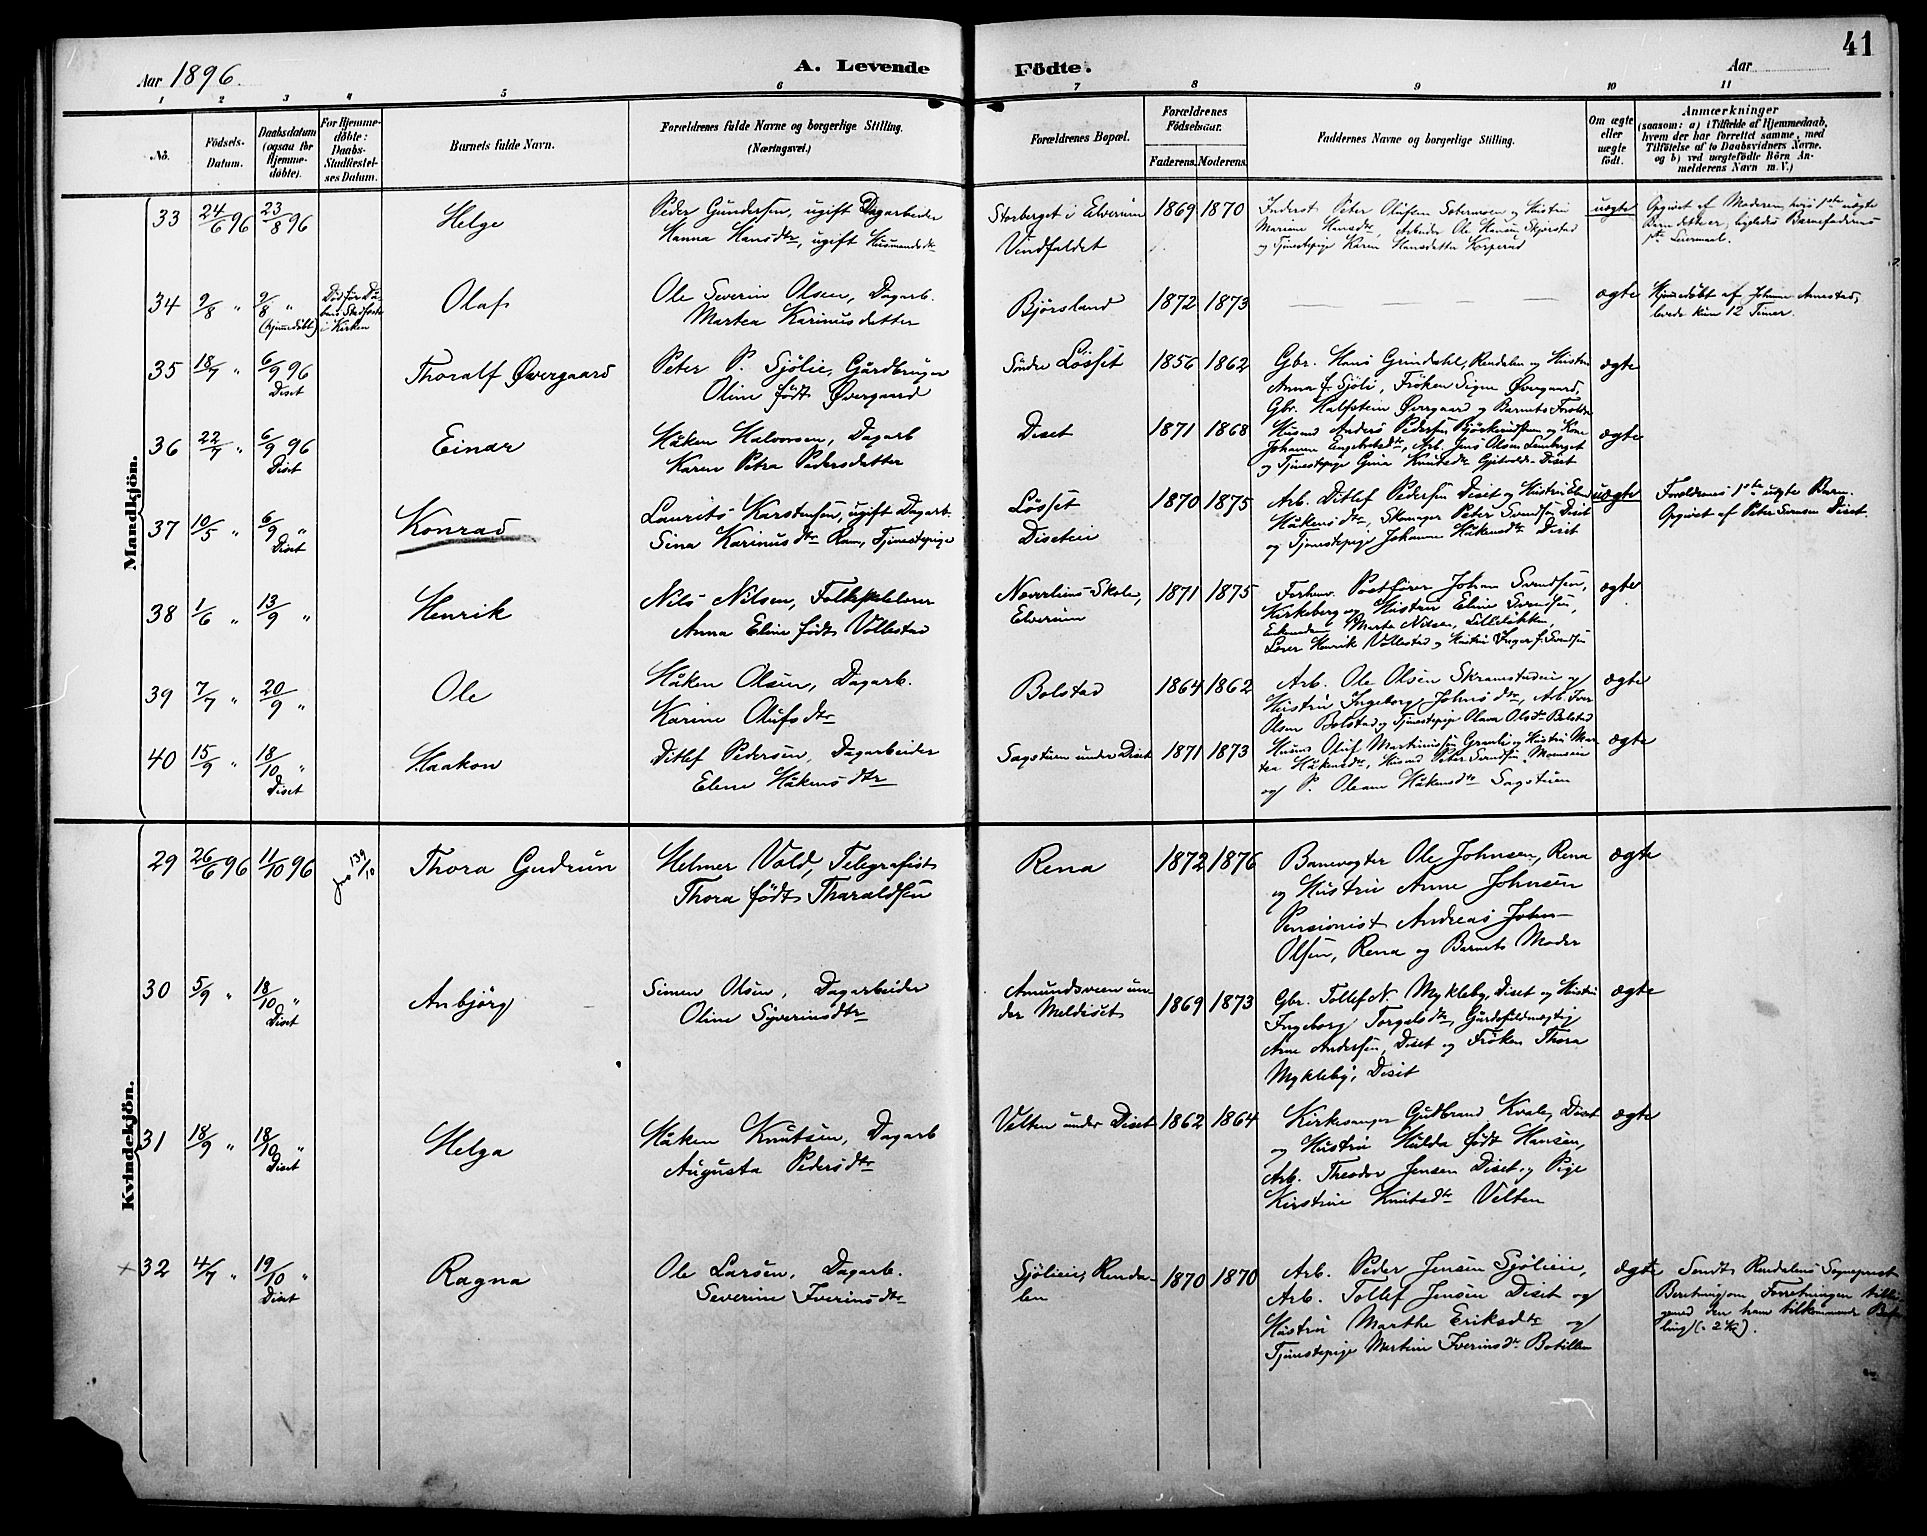 41
Aar 1896.
A. Levende
Födte.
Aar
1 2 3 4 5 6 7 8 9 10 11
Nô.
Födsels-Datum.
Daabsdatum (ogsaa for Hjemme-döbte).
For Hjemme-döbte: Daabs-Stadfæstel-ses Datum.
Barnets fulde Navn.
Forældrenes fulde Navne og borgerlige Stilling. (Næringsvei.)
Forældrenes Bopæl.
Forældrenes Födselsaar.
Faderens. Moderens.
Faddernes Navne og borgerlige Stilling.
Om ægte eller uægte födt.
Anmærkninger
(saasom: a) i Tilfælde af Hjemmedaab, hvem der har forrettet samme, med Tilföielse af to Daabsvidners Navne. og b) ved uægtefödte Börn An-melderens Navn m.V.)
Mandkjön.
33 24/6 96 23/8 96 Helge
Peder Gundersen, ugift Dagarbeider
Hanna Hansdtr, ugift Husmandsdtr
Storberget i Elverum
Vindfaldet
1869 1870
Inderst Peter Olufsen Sætermoen og Hustru
Mariane Hansdtr, Arbeider Ole Hansen Skjerstad
og Tjenestepige Karen Hansdatter Korperud
uægte
Opgivet af Moderen, hvis 1ste uægte
Barn dette er, ligeledes Barnefaderens
1ste Leiermaal.
34 9/8 " 9/8 " (hjemmedöbt)
Olaf
Ole Severin Olsen, Dagarb.
Martea Karinusdatter
Bjørsland
1872 1873
— — — — —
ægte
Hjemmedöbt af Johanne Arnestad,
levede kun 12 Timer.
35 18/7 " 6/9 96 Diset
Thoralf Øvergaard
Peter P. Sjölie, Gårdbruger
Oline födt Øvergaard
Söndre Løsset
1856 1862
Gbr. Hans Grindahl, Rendalen og Hustru
Anna f. Sjöli, Fröken Signe Øvergaard,
Gbr. Halfstein Øvergaard og Barnets Foreldre
ægte
36 22/7 " 6/9 96 Diset
Einar
Håken Halvorsen, Dagarb
Karen Petra Pedersdatter
Diset
1871 1868
Husmd Anders Pedersen og Kone
Johanne Engebretsdtr, Arb. Jens Olsen Lemberget
og Tjenestepige Gina Knutsdtr Diset
ægte
37 10/5 " 6/9 " Diset
Konrad
Laurits Karstensen, ugift Dagarb.
Sina Karinusdtr Ram, Tjenestepige
Løsset
Diseteie
1870 1875
Arb. Ditlef Pedersen Diset og Hustru Elen
Håkensdtr, Skomager Peter Svendsen Diset
og Tjenestepige Johanne Håkensdtr Diset
uægte
Foreldrenes 1ste uægte Barn.
Opgivet af Peter Svensen Diset.
38 1/6 " 13/9 "
Henrik
Nils Nilsen, Folkskolelærer
Anna Eline födt Vollestad
Nøverliens Skole,
Elverum
1871 1875
Forhenv. Postförer Johan Svendsen,
Kirkeberg og Hustru Eline Svendsen,
Enkemadam Marte Nilsen, Lillelökken,
Lærer Henrik Vollestad og Hustru Inger f. Svendsen
ægte
39 7/7 " 20/9 "
Ole
Håken Olsen, Dagarb.
Karine Olufsdtr
Bolstad
1864 1862
Arb. Ole Olsen Skramstadeie og
Hustru Ingeborg Johnsdtr, Arb. Iver
Olsen Bolstad og Tjenestepige Olava Olsdtr Bolstad
ægte
40 15/9 " 18/10 " Diset
Haakon
Ditlef Pedersen, Dagarbeider
Elene Håkensdtr
Sagstuen under Diset
1871 1873
Husmd Oluf Martinussen Granli og Hustru Mar-
tea Håkensdtr, Husmd Peter Svendsen Momoen
og P. Oleane Håkensdtr Sagstuen
ægte
Kvindekjön.
29 26/6 96 11/10 96 139/10
Thora Gudrun
Helmer Vold, Telegrafist
Thora födt Tharaldsen
Rena
1872 1876
Banevogter Ole Johnsen, Rena
og Hustru Anne Johnsen
Pensionist Andreas John-
Olsen, Rena og Barnets Moder
ægte
30 5/9 " 18/10 " Diset
Anbjörg
Simen Olsen, Dagarbeider
Oline Syverinsdtr
Amundsveen un-
der Meldiset
1869 1873
Gbr. Tollef N. Mykleby, Diset og Hustru
Ingeborg Torgalsdtr, Gårdsfuldmægtig
Arne Andersen, Diset og Fröken Thora
Mykleby, Diset
ægte
31 18/9 " 18/10 " Diset
Helga
Håken Knutsen, Dagarb
Augusta Pedersdtr
Velten under Diset
1862 1864
Kirkesanger Gudbrand Kvale, Diset
og Hustru Hulda födt Hansen,
Arb. Theodor Jensen Diset og Pige
Kirstine Knutsdtr Velten
ægte
+ 32 4/7 " 19/10 " Diset
Ragna
Ole Larsen, Dagarb.
Severine Iverinsdtr
Sjölieie, Renda-
len
1870 1870
Arb. Peder Jensen Sjölieie,
Arb. Tollef Jensen Diset og
Hustru Marthe Eriksdtr og
Tjenestepige Martine Iverinsdtr Botillen
ægte
Sendt Rendalens Sogneprest
Beretning om Forretningen tilli-
gemed den ham tilkommende Beta-
ling (: 2 Kr).